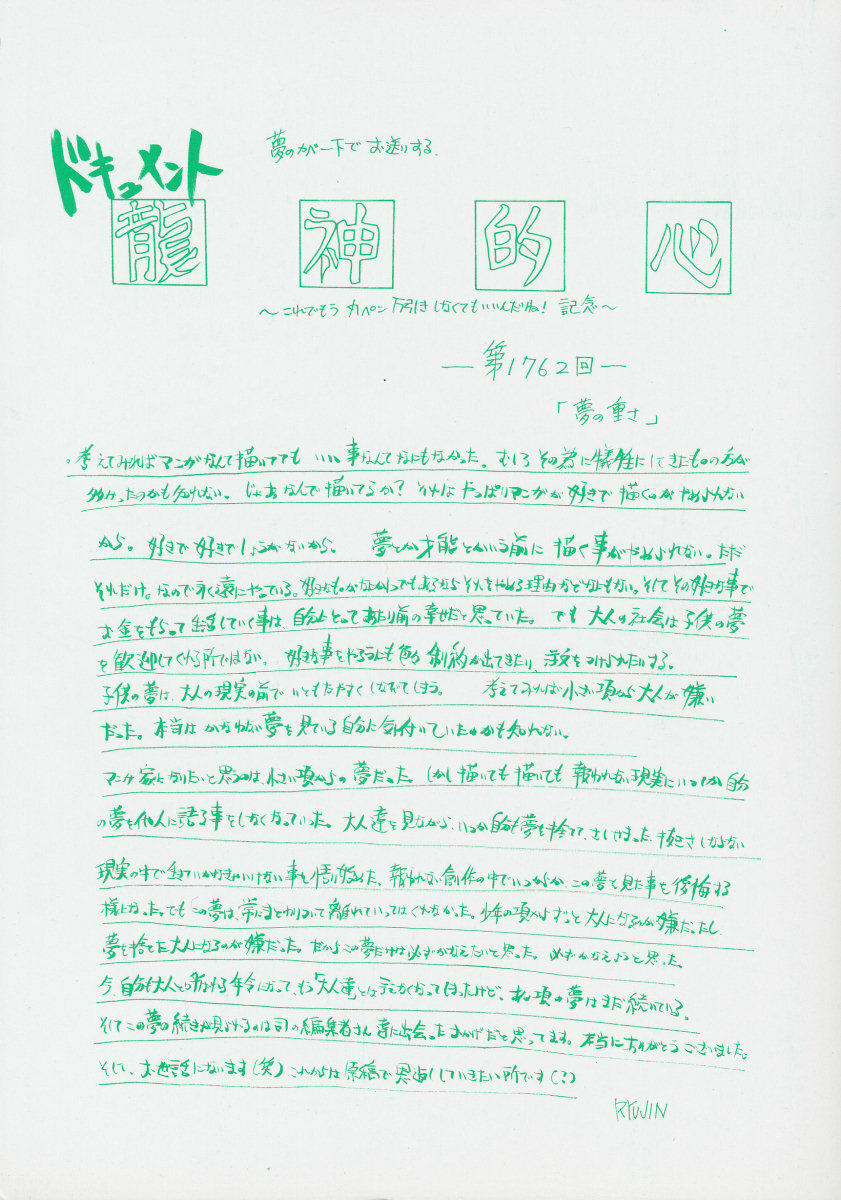 ドキュメント
夢のカバー下でお送りする.
龍神的心
〜これでもう カペン 万引きしなくてもいいんだね! 記念〜
―第1762回―
「夢の重さ」
。考えてみればマンガなんて描いてても いい事なんてなにもなかった。むしろ その為に犠牲にしてきたものの方が
多かったのかも知れない。じゃあなんで描いてるか? それはやっぱりマンガが好きで描くのがやめられない
から。好きで好きでしょうがないから。 夢とか才能とかいう前に 描く事がやめられない。ただ
それだけ。なので永遠にやっている。好きなものがなかったらそれをやめる理由などなにもない。そしてその好きな事で
お金をもらって生活していく事は、自分にとってあたり前の幸せだと思っていた。でも 大人の社会は子供の夢
を歓迎してくれる所ではない。好きな事をやるにも色々制約が出てきたり、注文をつけられたりする。
子供の夢は、大人の現実の前でいともたやすくしなびてしまう。 考えてみれば小さい頃から大人が嫌い
だった。本当は かなわない夢を見ている自分に気付いていたのかも知れない。
マンガ家になりたいと思うのは、小さい頃からの夢だった。しかし描いても描いても 報われない現実にいつしか自分
の夢を他人に語る事をしなくなっていった。大人達を見ながら、いつか自分も夢を捨て、
現実の中で生きていかなきゃいけない事を悟り始めた、報われない創作の中でいつからか、この夢を見た事を後悔する
様になった。でもこの夢は、常にまとわりついて離れていってはくれなかった。少年の頃からずっと大人になるのが嫌だったし、
夢を捨てた大人になるのが嫌だった。だからこの夢だけは必ずかなえたいと思った。必ずかなえようと思った。
今、自分も大人と呼ばれる年令になって、もう「大人達」とは言えなくなってしまったけど、あの頃の夢はまだ続いている。
そしてこの夢の続きが見れるのは司の編集者さん達に出会ったおかげだと思ってます。本当にありがとうございました。
そして、お世話になります(笑) これからは原稿で恩返ししていきたい所です(?)
RYUJIN